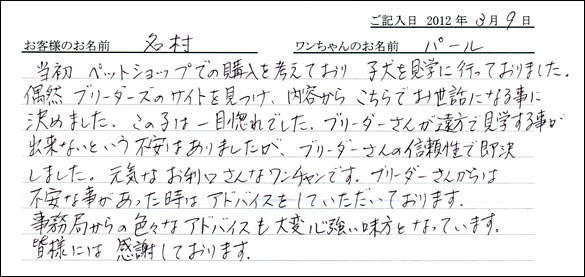 ご記入日 2012年 3月 9日
お客様のお名前 名村 ワンちゃんのお名前 パール
当初 ペットショップでの購入を考えており 子犬を見学に行っておりました。
偶然 ブリーダーズのサイトを見つけ、内容から こちらでお世話になる事に
決めました。この子は一目惚れでした。ブリーダーさんが遠方で見学する事が
出来ないという不安はありましたが、ブリーダーさんの信頼性で即決
しました。元気な お利口さんなワンチャンです。ブリーダーさんからは
不安な事があった時は アドバイスをしていただいております。
事務局からの色々なアドバイスも大変心強い味方となっています。
皆様には 感謝しております。